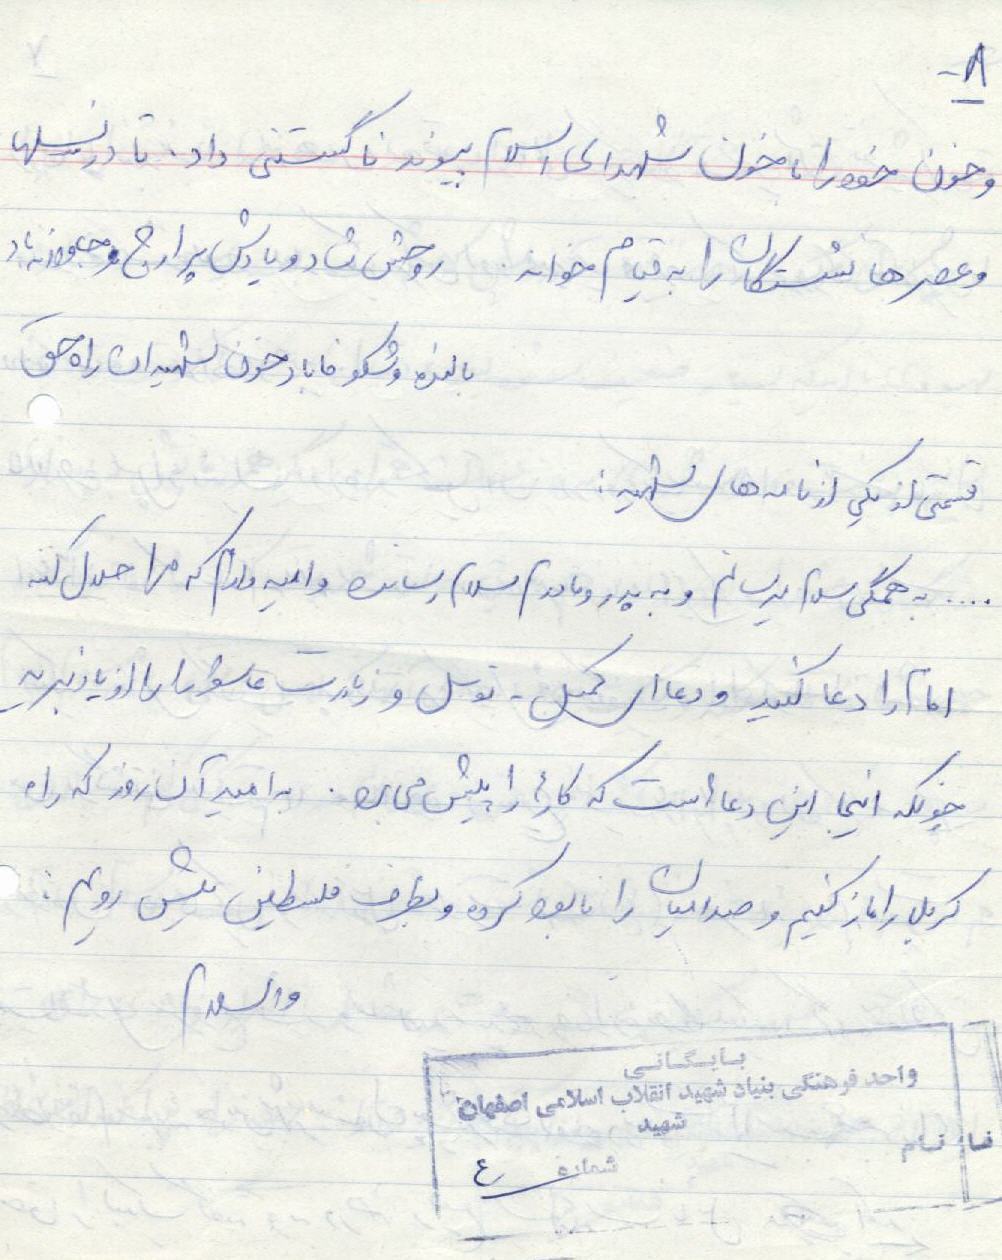 ۸-
و خون خود را با خون شهدای اسلام پیوند ناگسستنی داد. تا در نسلها
و عصرها نشستگان را به قیام خواند. روحش شاد و یادش پر ارج و جاودانه باد
بالنده و شکوفا باد خون شهیدان راه حق
قسمتی از یکی از نامه های شهید:
.... به همگی سلام برسانم و به پدر و مادرم سلام رسانده و امید وارم که مرا حلال کنند
امام را دعا کنید و دعا ای کمیل - توسل و زیارت عاشورا را از یاد نبرید
چونکه اینجا این دعا است که کارها را پیش می برد. به امید آن روز که راه
کربلا را باز کنیم و صدامیان را نابود کرده و بطرف فلسطین پیش رویم:
والسلام
بایگانی
واحد فرهنگی بنیاد شهید انقلاب اسلامی اصفهان
شهید
شماره ۴
نام